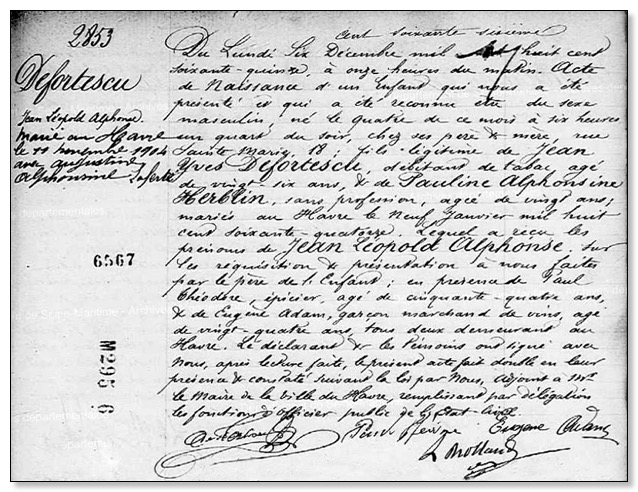 cent soixante sixième
2853
Defortescu
Jean Léopold Alphonse.
Marié au Havre
le 11 novembre 1904
avec Augustine
Alphonsine Laferté
6567
M295 6
Du Lundi Six Décembre mil huit cent
soixante-quinze, à onze heures du matin. Acte
de Naissance d'un Enfant qui nous a été
présenté et qui a été reconnu être du sexe
masculin, né le quatre de ce mois à six heures
un quart du soir, chez ses père & mère, rue
Sainte Marie, 18; fils légitime de Jean
Yves Defortescu, débitant de tabac, agé
de vingt-six ans, & de Pauline Alphonsine
Herblin, sans profession, agée de vingt ans;
mariés au Havre le Neuf Janvier mil huit
cent soixante-quatorze. Lequel a reçu les
prénoms de Jean Léopold Alphonse. sur
les réquisition & présentation à nous faites
par le père de l'Enfant; en présence de Paul
Théodore, épicier, agé de cinquante-quatre ans,
& de Eugène Adam, garçon marchand de vins, agé
de vingt-quatre ans, tous deux demeurant au
Havre. Le déclarant & les témoins ont signé avec
Nous, après lecture faite, le présent acte fait double en leur
présence & constaté suivant la loi par Nous, Adjoint à Mr
le Maire de la Ville du Havre, remplissant par délégation
les fonctions d'Officier public de l'Etat-Civil.
Eugene Adam